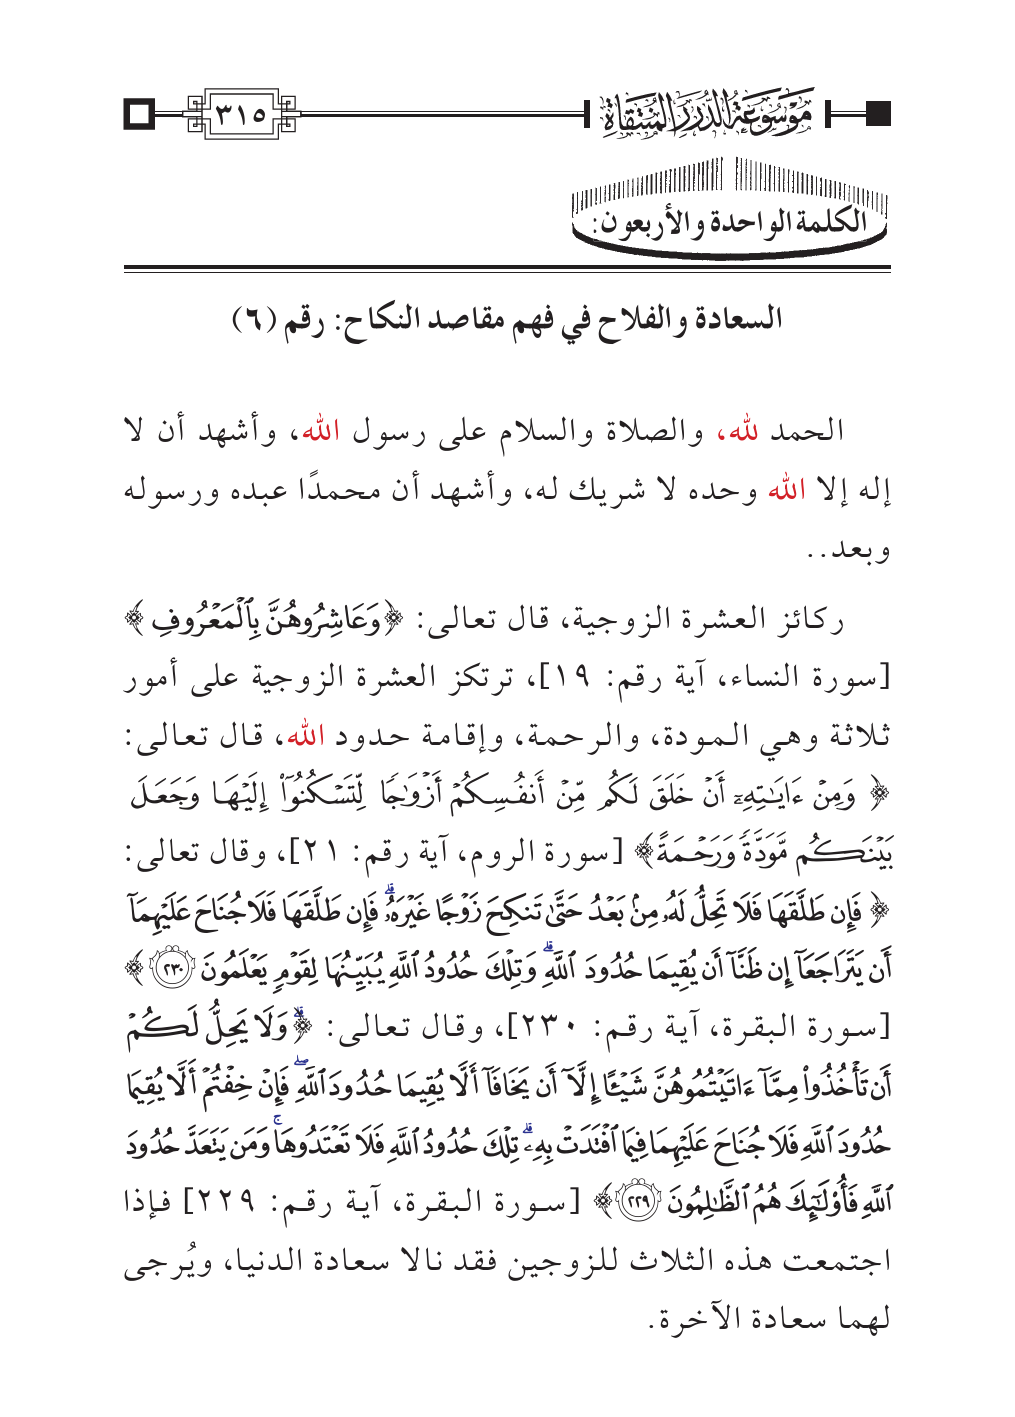 مَوْسُوعَةُ الدُّرَرِ الْمُنْتَقَاةِ ٣١٥
الكلمة الواحدة والأربعون:
السعادة والفلاح في فهم مقاصد النكاح: رقم (٦)
الحمد لله، والصلاة والسلام على رسول الله، وأشهد أن لا
إله إلا الله وحده لا شريك له، وأشهد أن محمدًا عبده ورسوله
وبعد..
ركائز العشرة الزوجية، قال تعالى: ﴿وَعَاشِرُوهُنَّ بِٱلْمَعْرُوفِ ﴾
[سورة النساء، آية رقم: ١٩]، ترتكز العشرة الزوجية على أمور
ثلاثة وهي المودة، والرحمة، وإقامة حدود الله، قال تعالى:
﴿ وَمِنْ ءَايَـٰتِهِۦٓ أَنْ خَلَقَ لَكُم مِّنْ أَنفُسِكُمْ أَزْوَٰجًا لِّتَسْكُنُوٓا۟ إِلَيْهَا وَجَعَلَ
بَيْنَكُم مَّوَدَّةً وَرَحْمَةً﴾ [سورة الروم، آية رقم: ٢١]، وقال تعالى:
﴿ فَإِن طَلَّقَهَا فَلَا تَحِلُّ لَهُۥ مِنۢ بَعْدُ حَتَّىٰ تَنكِحَ زَوْجًا غَيْرَهُۥۗ فَإِن طَلَّقَهَا فَلَا جُنَاحَ عَلَيْهِمَآ
أَن يَتَرَاجَعَآ إِن ظَنَّآ أَن يُقِيمَا حُدُودَ ٱللَّهِۗ وَتِلْكَ حُدُودُ ٱللَّهِ يُبَيِّنُهَا لِقَوْمٍ يَعْلَمُونَ ٢٣٠ ﴾
[سورة البقرة، آية رقم: ٢٣٠]، وقال تعالى: ﴿ۗ وَلَا يَحِلُّ لَكُمْ
أَن تَأْخُذُوا۟ مِمَّآ ءَاتَيْتُمُوهُنَّ شَيْـًٔا إِلَّآ أَن يَخَافَآ أَلَّا يُقِيمَا حُدُودَ ٱللَّهِۖ فَإِنْ خِفْتُمْ أَلَّا يُقِيمَا
حُدُودَ ٱللَّهِ فَلَا جُنَاحَ عَلَيْهِمَا فِيمَا ٱفْتَدَتْ بِهِۦۗ تِلْكَ حُدُودُ ٱللَّهِ فَلَا تَعْتَدُوهَاۚ وَمَن يَتَعَدَّ حُدُودَ
ٱللَّهِ فَأُو۟لَـٰٓئِكَ هُمُ ٱلظَّـٰلِمُونَ ٢٢٩ ﴾ [سورة البقرة، آية رقم: ٢٢٩] فإذا
اجتمعت هذه الثلاث للزوجين فقد نالا سعادة الدنيا، ويُرجى
لهما سعادة الآخرة.